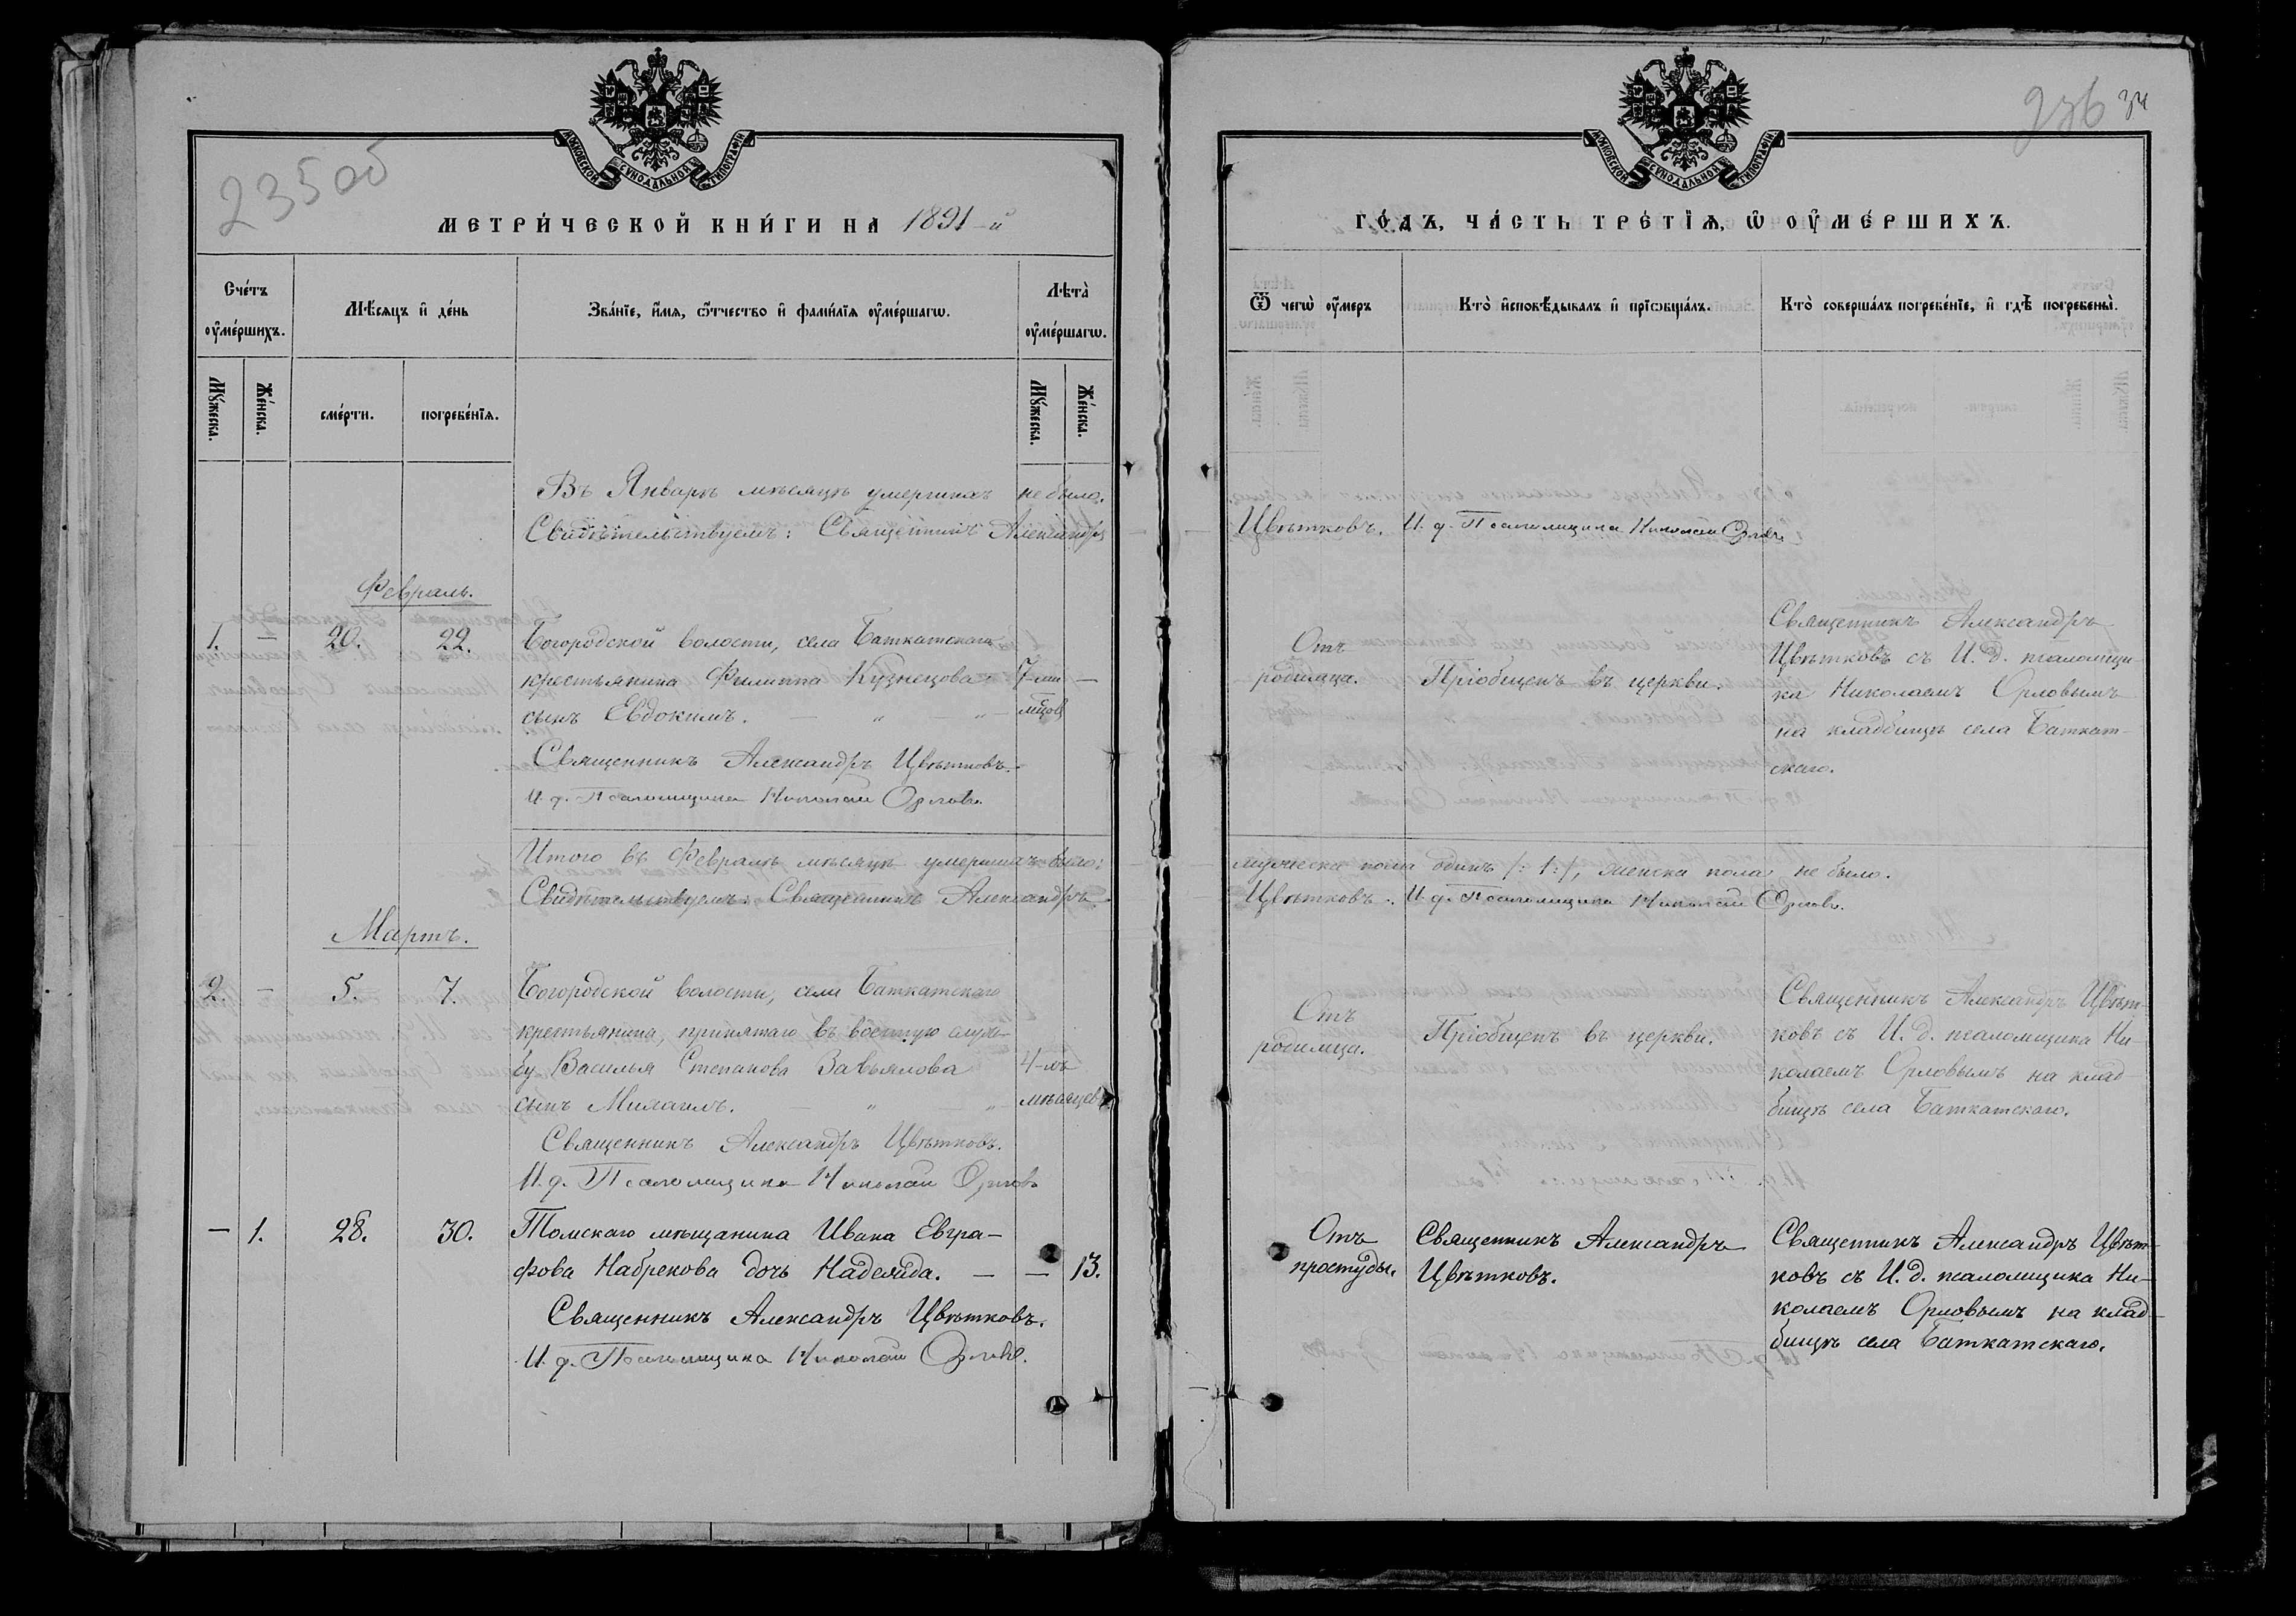 235об
МОСКОВСКОЙ СѴНОДАЛЬНОЙ ТИПОГРАФІИ
МЕТРИ́ЧЕСКОЙ КНИ́ГИ НА 1891-й
Сче́тъ ᲂу҆ме́ршихъ.
Мѣ́сяцъ и҆ де́нь
Зва́нїе, и҆́мя, ѻ҆́тчество и҆ фами́лїя ᲂу҆ме́ршагѡ.
Лѣта̀ ᲂу҆ме́ршагѡ.
Мꙋ́жеска.
Же́нска.
сме́рти.
погребе́нїя.
Мꙋ́жеска.
Же́нска.
Въ Январѣ мѣсяцѣ умершихъ не было.
Свидѣтельствуемъ: Священникъ Александръ
Февраль.
1. — 20. 22. Богородской волости, села Баткатскаго
крестьянина Филиппа Кузнецова 7-ми —
сынъ Евдокимъ. — „ — „ — мѣсяц.
Священникъ Александръ Цвѣтковъ.
И. д. Псаломщика Николай Орловъ.
Итого въ Февралѣ мѣсяцѣ умершихъ было:
Свидѣтельствуемъ: Священникъ Александръ
Мартъ.
2. — 5. 7. Богородской волости, села Баткатскаго
крестьянина, принятаго въ военную служ-
бу Василья Степанова Завьялова 4-хъ
сынъ Михаилъ. — „ „ мѣсяцевъ
Священникъ Александръ Цвѣтковъ.
И. д. Псаломщика Николай Орловъ
— 1. 28. 30. Томскаго мѣщанина Ивана Евгра-
фова Набрекова дочь Надежда. — — 13.
Священникъ Александръ Цвѣтковъ.
И. д. Псаломщика Николай Орловъ.
236
МОСКОВСКОЙ СѴНОДАЛЬНОЙ ТИПОГРАФІИ
ГО́ДЪ, ЧА́СТЬ ТРЕ́ТЇѦ, Ѡ҆ ОУ҆МЕ́РШИХЪ.
Ѿ чегѡ̀ ᲂу҆́меръ
Кто̀ и҆сповѣ́дывалъ и҆ прїѡбща́лъ.
Кто̀ соверша́лъ погребе́нїе, и҆ гдѣ̀ погребены̀.
Цвѣтковъ. И. д. Псаломщика Николай Орловъ.
Отъ
родимца.
Пріобщенъ въ церкви.
Священникъ Александръ
Цвѣтковъ съ И. д. псаломщи-
ка Николаемъ Орловымъ
на кладбищѣ села Баткат-
скаго.
мужеска пола одинъ /: 1 :/, женска пола не было.
Цвѣтковъ. И. д. Псаломщика Николай Орловъ.
Отъ
родимца.
Пріобщенъ въ церкви.
Священникъ Александръ Цвѣт-
ковъ съ И. д. псаломщика Ни-
колаемъ Орловымъ на клад-
бищѣ села Баткатскаго.
Отъ
простуды.
Священникъ Александръ
Цвѣтковъ.
Священникъ Александръ Цвѣт-
ковъ съ И. д. псаломщика Ни-
колаемъ Орловымъ на клад-
бищѣ села Баткатскаго.